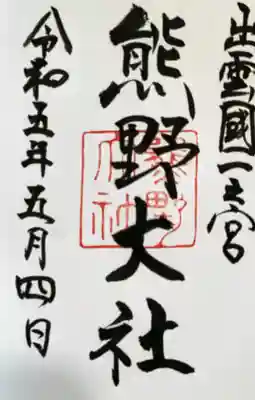 出雲國一之宮
熊野大社
令和五年五月四日
熊野大社